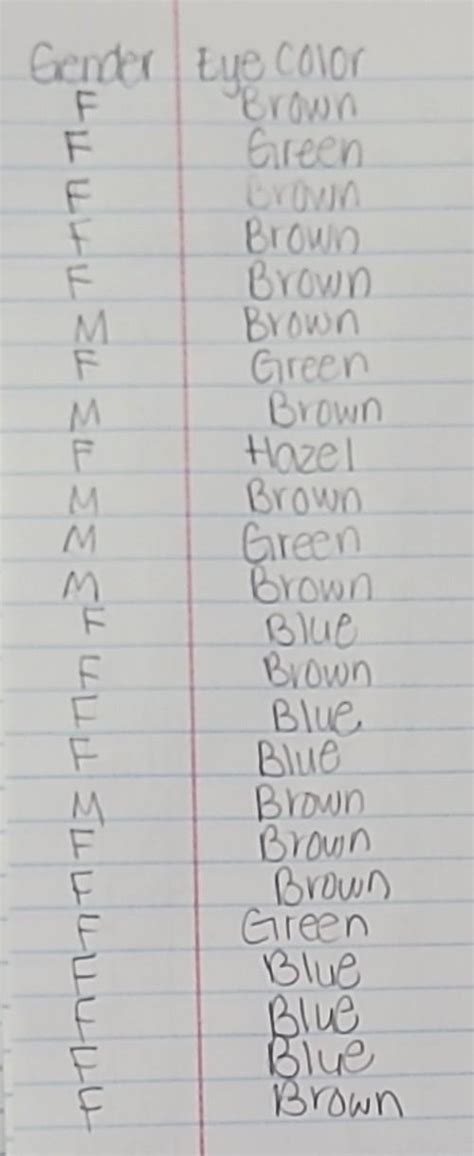 Gender Eye Color
F Brown
F Green
F Brown
F Brown
F Brown
M Brown
F Green
M Brown
F Hazel
M Brown
M Green
M Brown
F Blue
F Brown
F Blue
F Blue
M Brown
F Brown
F Brown
F Green
F Blue
F Blue
F Blue
F Brown